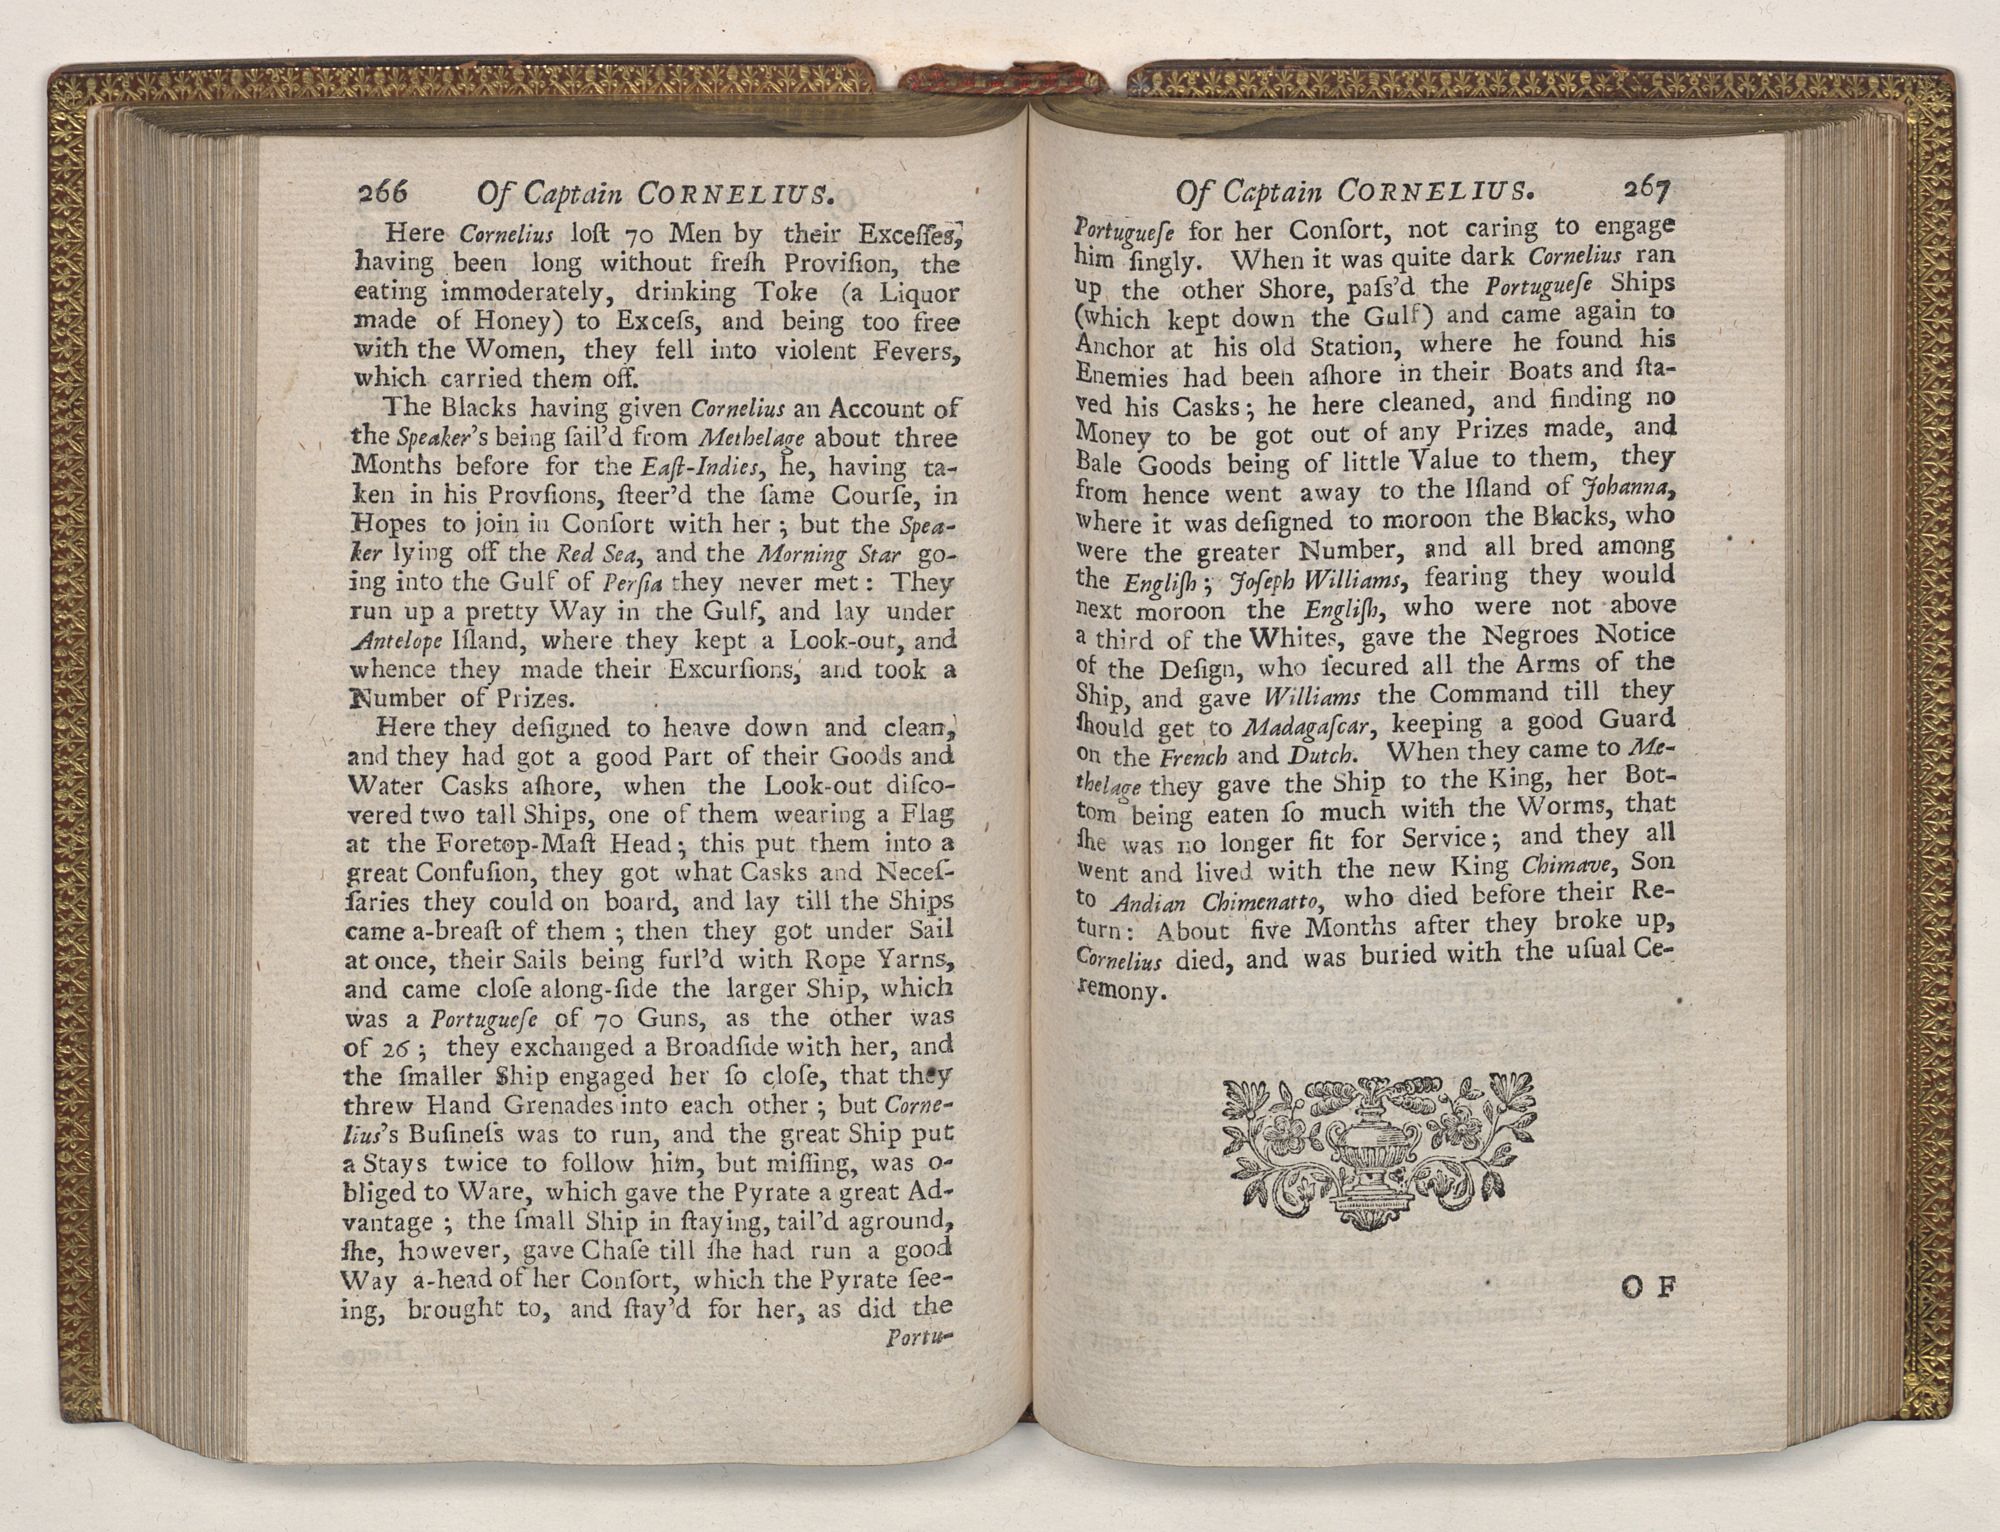 266 Of Captain CORNELIUS.
Here Cornelius loſt 70 Men by their Exceſſes,
having been long without freſh Proviſion, the
eating immoderately, drinking Toke (a Liquor
made of Honey) to Exceſs, and being too free
with the Women, they fell into violent Fevers,
which carried them off.
The Blacks having given Cornelius an Account of
the Speaker's being ſail'd from Methelage about three
Months before for the Eaſt-Indies, he, having ta-
ken in his Provſions, ſteer'd the ſame Courſe, in
Hopes to join in Conſort with her; but the Spea-
ker lying off the Red Sea, and the Morning Star go-
ing into the Gulf of Perſia they never met: They
run up a pretty Way in the Gulf, and lay under
Antelope Iſland, where they kept a Look-out, and
whence they made their Excurſions, and took a
Number of Prizes.
Here they deſigned to heave down and clean,
and they had got a good Part of their Goods and
Water Casks aſhore, when the Look-out diſco-
vered two tall Ships, one of them wearing a Flag
at the Foretop-Maſt Head; this put them into a
great Confuſion, they got what Casks and Neceſ-
ſaries they could on board, and lay till the Ships
came a-breaſt of them; then they got under Sail
at once, their Sails being furl'd with Rope Yarns,
and came cloſe along-ſide the larger Ship, which
was a Portugueſe of 70 Guns, as the other was
of 26; they exchanged a Broadſide with her, and
the ſmaller Ship engaged her ſo cloſe, that they
threw Hand Grenades into each other; but Corne-
lius's Buſineſs was to run, and the great Ship put
a Stays twice to follow him, but miſſing, was o-
bliged to Ware, which gave the Pyrate a great Ad-
vantage; the ſmall Ship in ſtaying, tail'd aground,
ſhe, however, gave Chaſe till ſhe had run a good
Way a-head of her Conſort, which the Pyrate ſee-
ing, brought to, and ſtay'd for her, as did the
Portu-
Of Captain CORNELIUS. 267
Portugueſe for her Conſort, not caring to engage
him ſingly. When it was quite dark Cornelius ran
up the other Shore, paſs'd the Portugueſe Ships
(which kept down the Gulf) and came again to
Anchor at his old Station, where he found his
Enemies had been aſhore in their Boats and ſta-
ved his Casks; he here cleaned, and finding no
Money to be got out of any Prizes made, and
Bale Goods being of little Value to them, they
from hence went away to the Iſland of Johanna,
where it was deſigned to moroon the Blacks, who
were the greater Number, and all bred among
the Engliſh; Joſeph Williams, fearing they would
next moroon the Engliſh, who were not above
a third of the Whites, gave the Negroes Notice
of the Deſign, who ſecured all the Arms of the
Ship, and gave Williams the Command till they
ſhould get to Madagaſcar, keeping a good Guard
on the French and Dutch. When they came to Me-
thelage they gave the Ship to the King, her Bot-
tom being eaten ſo much with the Worms, that
ſhe was no longer fit for Service; and they all
went and lived with the new King Chimave, Son
to Andian Chimenatto, who died before their Re-
turn: About five Months after they broke up,
Cornelius died, and was buried with the uſual Ce-
remony.
OF